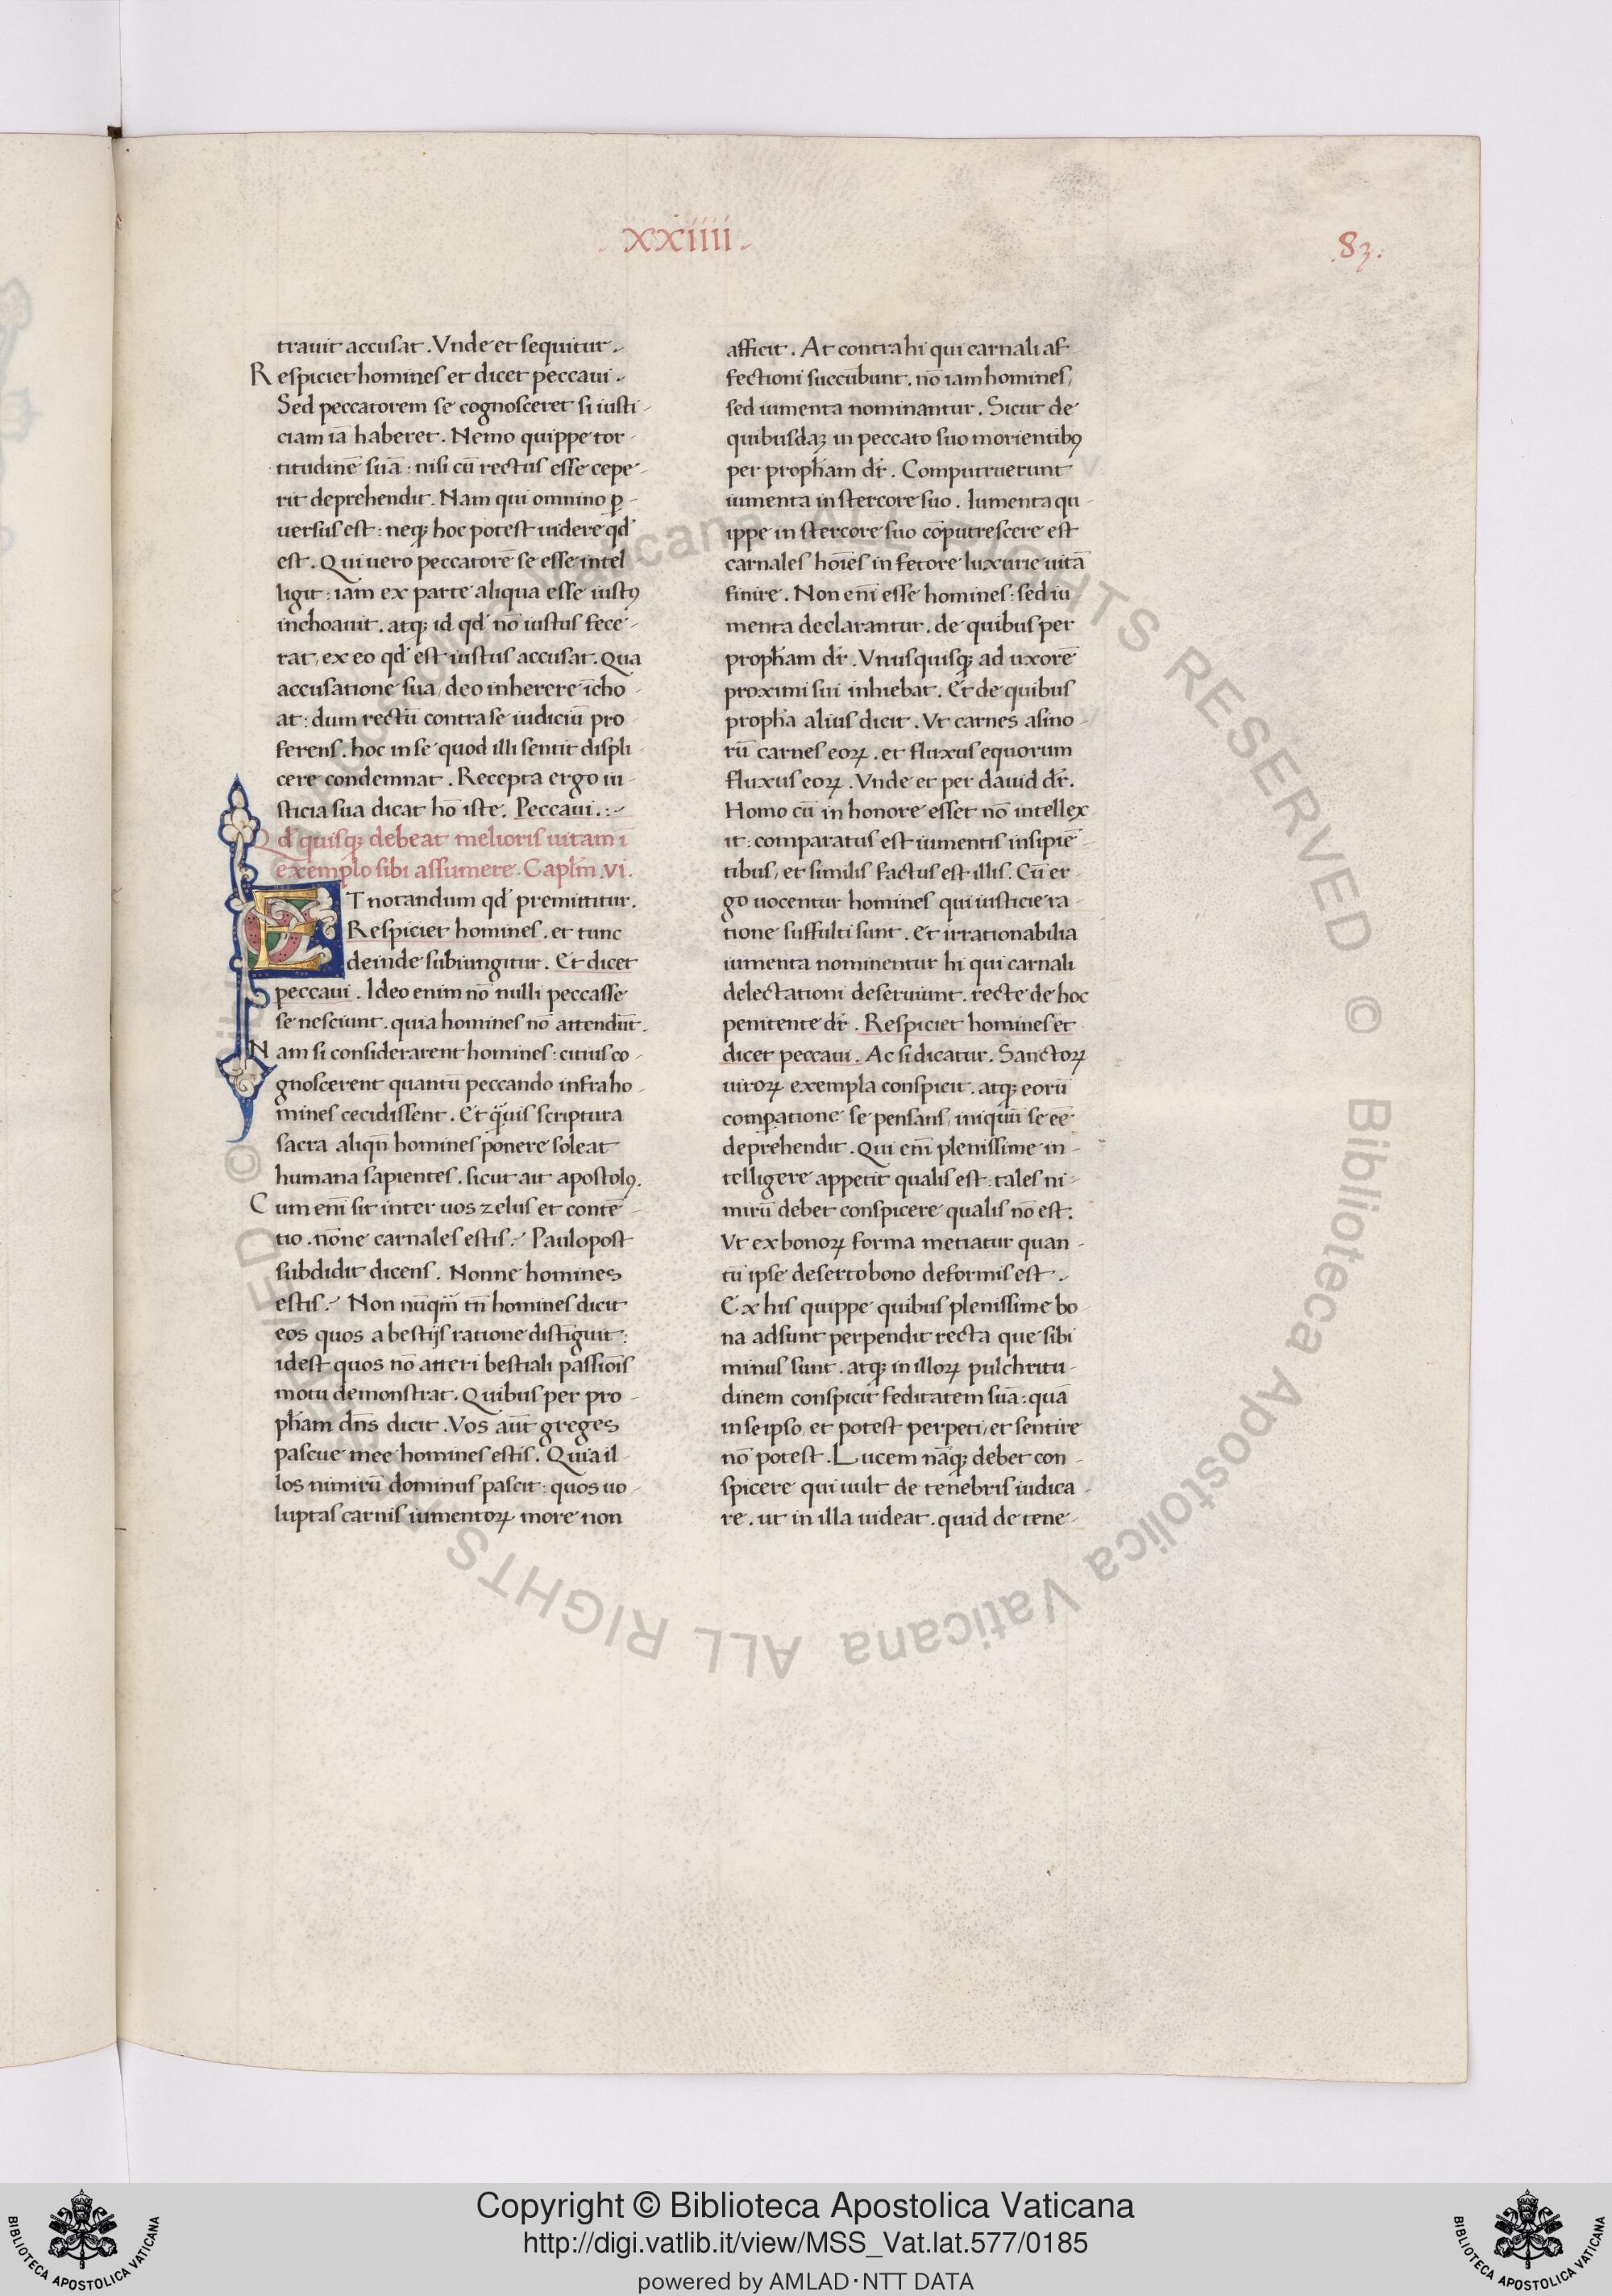 .xxiiii.
.83.
trauit accusat. Vnde et sequitur.
Respiciet homines et dicet peccaui.
Sed peccatorem se cognosceret si iusti-
ciam iā haberet. Nemo quippe tor-
titudinē suā: nisi cū rectus esse cepe-
rit deprehendit. Nam qui omnino ꝑ-
uersus est: neqꝫ hoc potest uidere qď
est. Qui uero peccatorē se esse intel
ligit: iam ex parte aliqua esse iustꝰ
inchoauit. atqꝫ id qď nō iustus fece-
rat, ex eo qď est iustus accusat. Qua
accusatione sua, deo inherere īcho-
at: dum rectū contra se iudiciū pro
ferens. hoc in se quod illi sentit displi-
cere condemnat. Recepta ergo iu-
sticia sua dicat hō iste. Peccaui.:-
Qď quisqꝫ debeat melioris uitam ī
exemplo sibi assumere. Caplm̄.vi.
ET notandum qď premittitur.
Respiciet homines. et tunc
deinde subiungitur. Et dicet
peccaui. Ideo enim nō nulli peccasse
se nesciunt. quia homines nō attendūt.
Nam si considerarent homines: citius co-
gnoscerent quantū peccando infra ho-
mines cecidissent. Et q̄uis scriptura
sacra aliqn̄ homines ponere soleat
humana sapientes. sicut ait apostolꝰ.
Cum enī sit inter uos zelus et contē-
tio. nōne carnales estis. Paulo post
subdidit dicens. Nonne homines
estis. Non nūqm̄ tn̄ homines dicit
eos quos a bestijs ratione distīguit:
idest quos nō atteri bestiali passiōis
motu demonstrat. Quibus per pro-
ph̄am dn̄s dicit. Vos aūt greges
pascue mee homines estis. Quia il-
los nimirū dominus pascit: quos uo-
luptas carnis iumentoꝝ more non
afficit. At contra hi qui carnali af-
fectioni succūbunt. nō iam homines,
sed iumenta nominantur. Sicut de
quibusdaꝫ in peccato suo morientibꝰ
per proph̄am dr̄. Computruerunt
iumenta in stercore suo. Iumenta qu-
ippe in stercore suo cōputrescere est
carnales hōies in fetore luxurie uitā
finire. Non enī esse homines: sed iu
menta declarantur. de quibus per
proph̄am dr̄. Vnusquisqꝫ ad uxorē
proximi sui inhiebat. Et de quibus
proph̄a alius dicit. Vt carnes asino-
rū carnes eoꝝ. et fluxus equorum
fluxus eoꝝ. Vnde et per dauid dr̄.
Homo cū in honore esset nō intellex
it: comparatus est iumentis insipiē-
tibus, et similis factus est illis. Cū er-
go uocentur homines qui iusticie ra-
tione suffulti sunt. Et irrationabilia
iumenta nominentur hi qui carnali
delectationi deseruiunt. recte de hoc
penitente dr̄. Respiciet homines et
dicet peccaui. Ac si dicatur. Sanctoꝝ
uiroꝝ exempla conspicit. atqꝫ eorū
comꝑatione se pensans, iniquū se eē
deprehendit. Qui enī plenissime in-
telligere appetit qualis est: tales ni-
mirū debet conspicere qualis nō est.
Vt ex bonoꝝ forma metiatur quan-
tū ipse deserto bono deformis est.
Ex his quippe quibus plenissime bo-
na adsunt perpendit recta que sibi
minus sunt. atqꝫ in illoꝝ pulchritu-
dinem conspicit feditatem suā: quā
in se ipso, et potest perpeti, et sentire
nō potest. Lucem nāqꝫ debet con-
spicere qui uult de tenebris iudica-
re. ut in illa uideat. quid de tene-
© Biblioteca Apostolica Vaticana ALL RIGHTS RESERVED
Copyright © Biblioteca Apostolica Vaticana
http://digi.vatlib.it/view/MSS_Vat.lat.577/0185
powered by AMLAD·NTT DATA
BIBLIOTECA APOSTOLICA VATICANA
BIBLIOTECA APOSTOLICA VATICANA